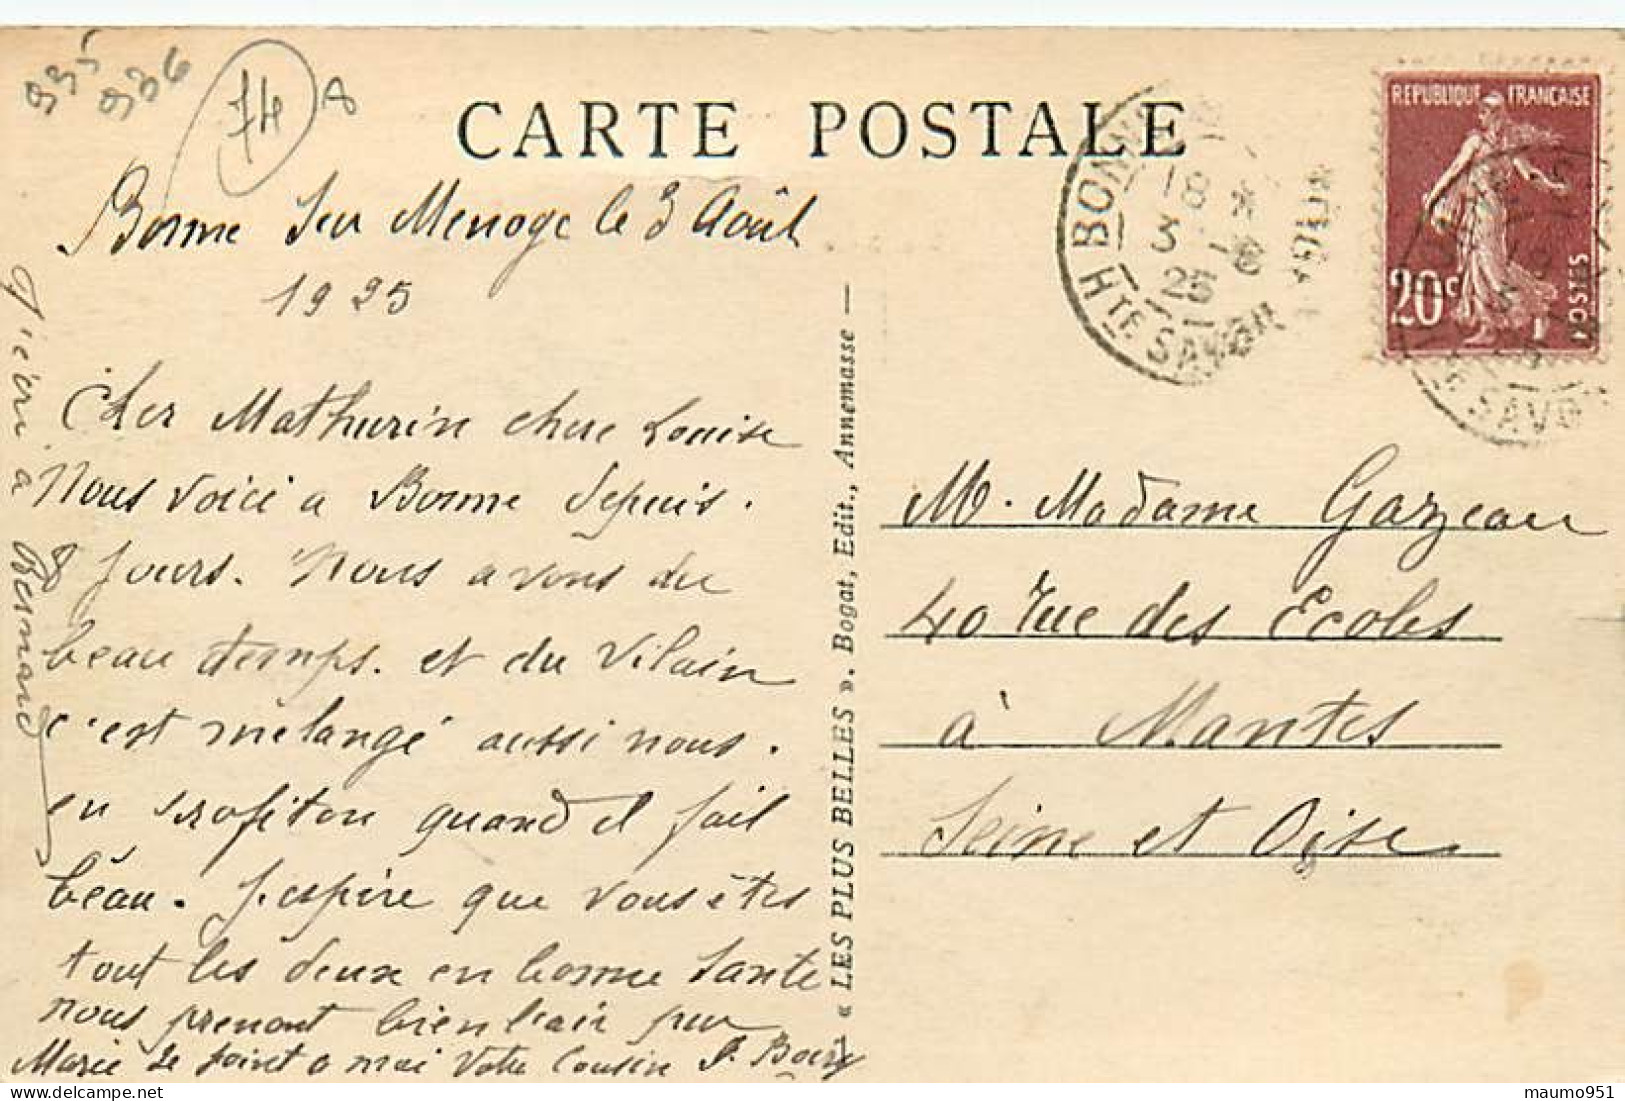 935
936
74
8
CARTE POSTALE
Bonne sur Menoge le 3 Août
1925
Cher Mathurin chere Louise
Nous voici a Bonne depuis
8 jours. Nous avons du
beau temps. et du vilain
c'est mélangé aussi nous.
en profiton quand il fait
beau. J'espire que vous êtes
tout les deux en bonne santé
nous prenont bien l'air pur
Marie se joint a moi Votre Cousin
J'écri à Bernard
« LES PLUS BELLES ». Bogat, Edit., Annemasse —
REPUBLIQUE FRANÇAISE
20c
POSTES
BONNE
18
3 -8
25
HTE SAVOIE
M. Madame Gazeau
40 rue des Ecoles
à Mantes
Seine et Oise
maumo951